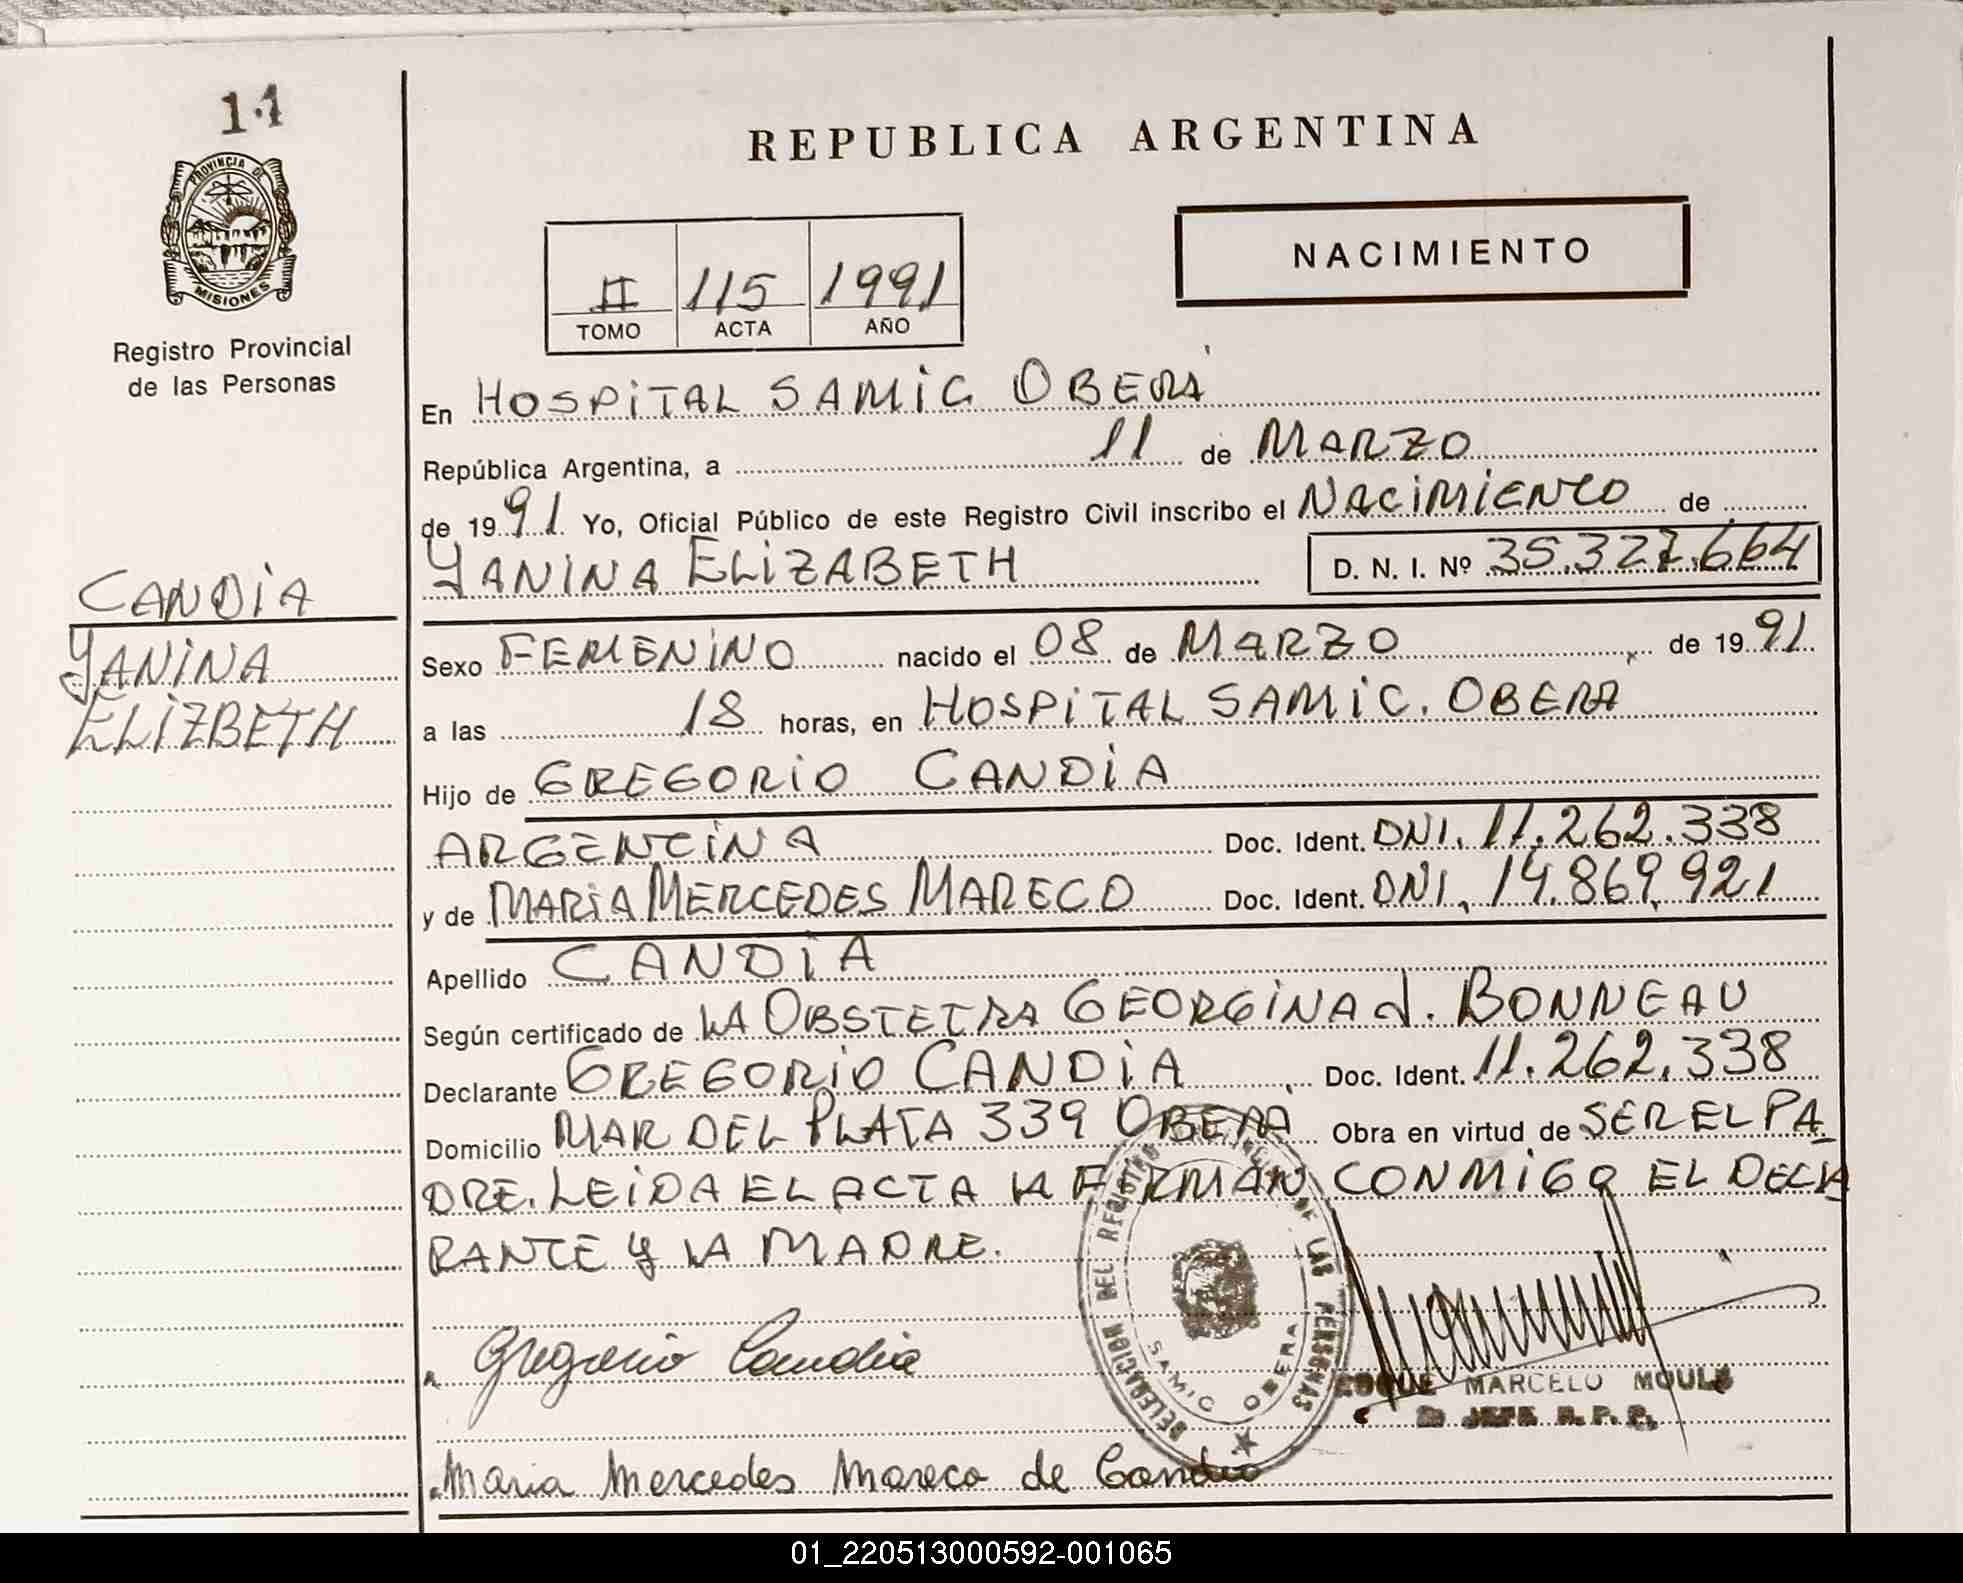 11
PROVINCIA DE
MISIONES
Registro Provincial
de las Personas
CANDIA
YANINA
ELIZBETH
REPUBLICA ARGENTINA
NACIMIENTO
II 115 1991
TOMO ACTA AÑO
En HOSPITAL SAMIC OBERÁ
República Argentina, a 11 de MARZO
de 1991 Yo, Oficial Público de este Registro Civil inscribo el NACIMIENTO de
YANINA ELIZABETH D. N. I. Nº 35.327.664
Sexo FEMENINO nacido el 08 de MARZO de 1991
a las 18 horas, en HOSPITAL SAMIC. OBERA
Hijo de GREGORIO CANDIA
ARGENTINA Doc. Ident. DNI. 11.262.338
y de MARIA MERCEDES MARECO Doc. Ident. DNI. 14.869.921
Apellido CANDIA
Según certificado de LA OBSTETRA GEORGINA J. BONNEAU
Declarante GREGORIO CANDIA Doc. Ident. 11.262.338
Domicilio MAR DEL PLATA 339 OBERA Obra en virtud de SER EL PA
DRE. LEIDA EL ACTA LA FIRMAN CONMIGO EL DECLA
RANTE Y LA MADRE.
DEL REGISTRO DE LAS PERSONAS
SAMIC OBERA
Gregorio Candia
ROQUE MARCELO
JEFE R.P.P.
Maria Mercedes Mareco de Candia
01_220513000592-001065